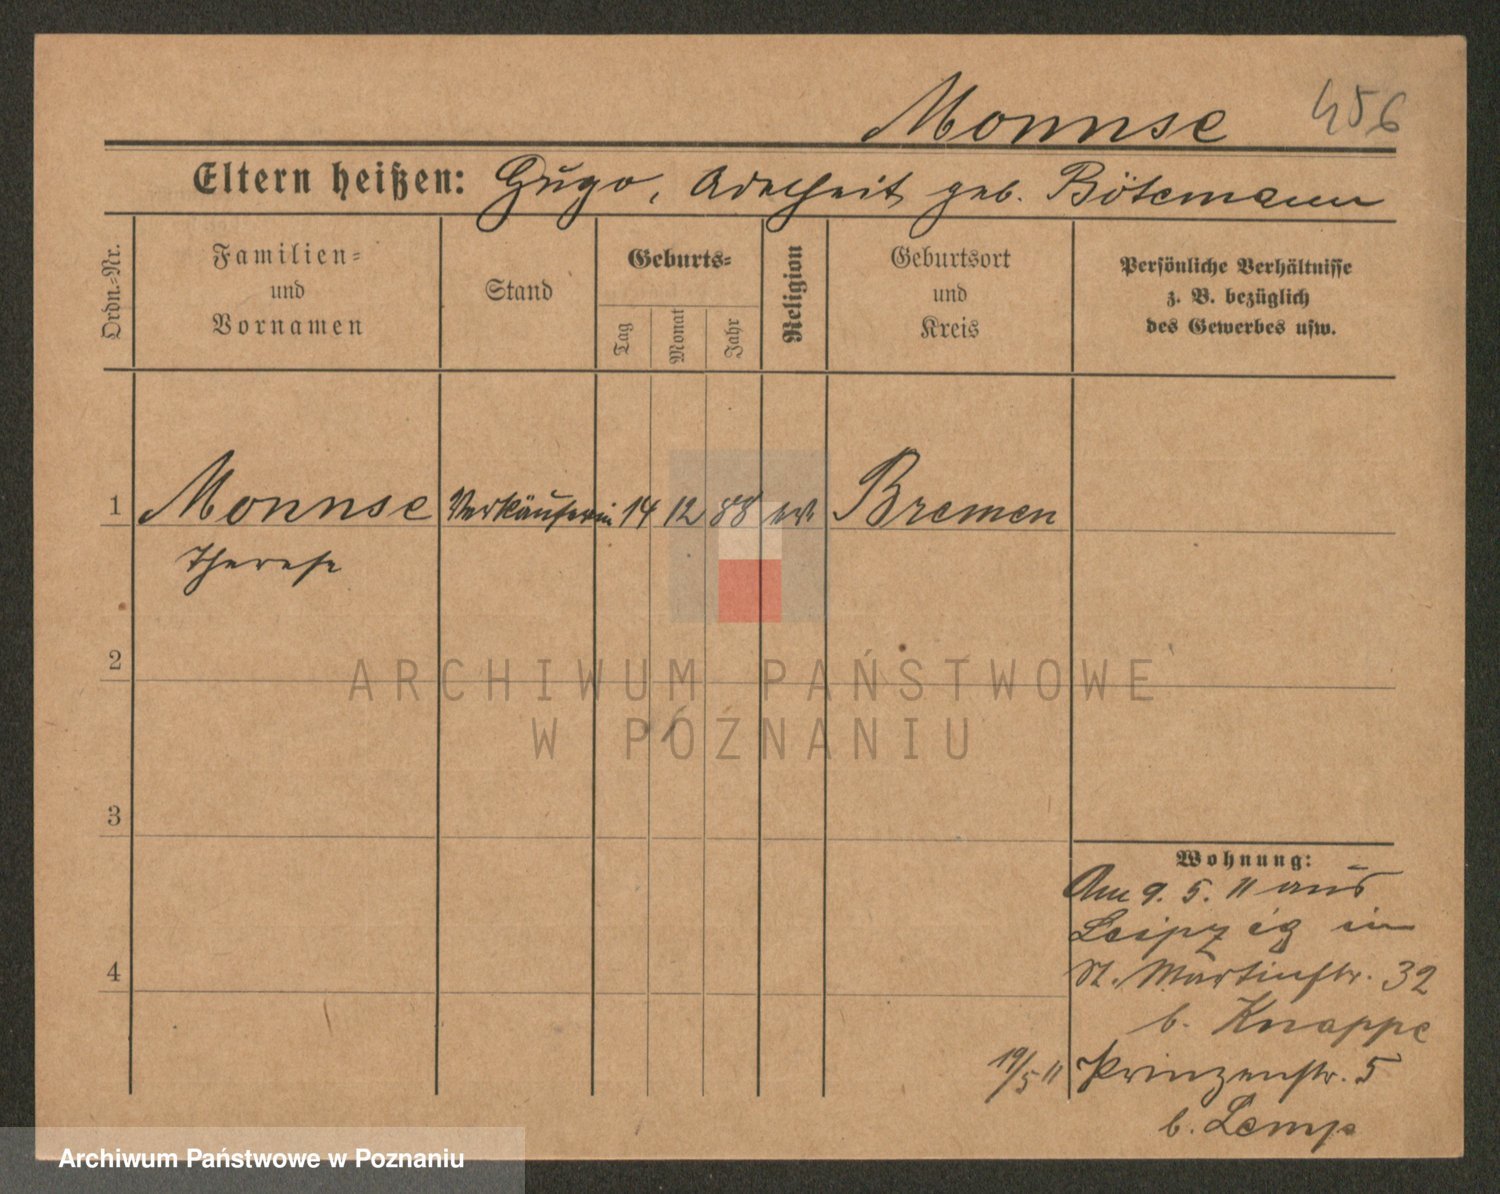 Monnse 456
Eltern heißen: Hugo, Adelheit geb. Bötemann
Ordn.-Nr.
Familien-
und
Vornamen
Stand
Geburts-
Tag
Monat
Jahr
Religion
Geburtsort
und
Kreis
Persönliche Verhältnisse
z. B. bezüglich
des Gewerbes usw.
1 Monnse Verkäuferin 14 12 88 ev. Bremen
Therese
2
ARCHIWUM PAŃSTWOWE
W POZNANIU
3
Wohnung:
Am 9. 5. 11 aus
Leipzig in
4 St. Martinstr. 32
b. Knappe
19/5 11 Prinzenstr. 5
b. Lemp
Archiwum Państwowe w Poznaniu